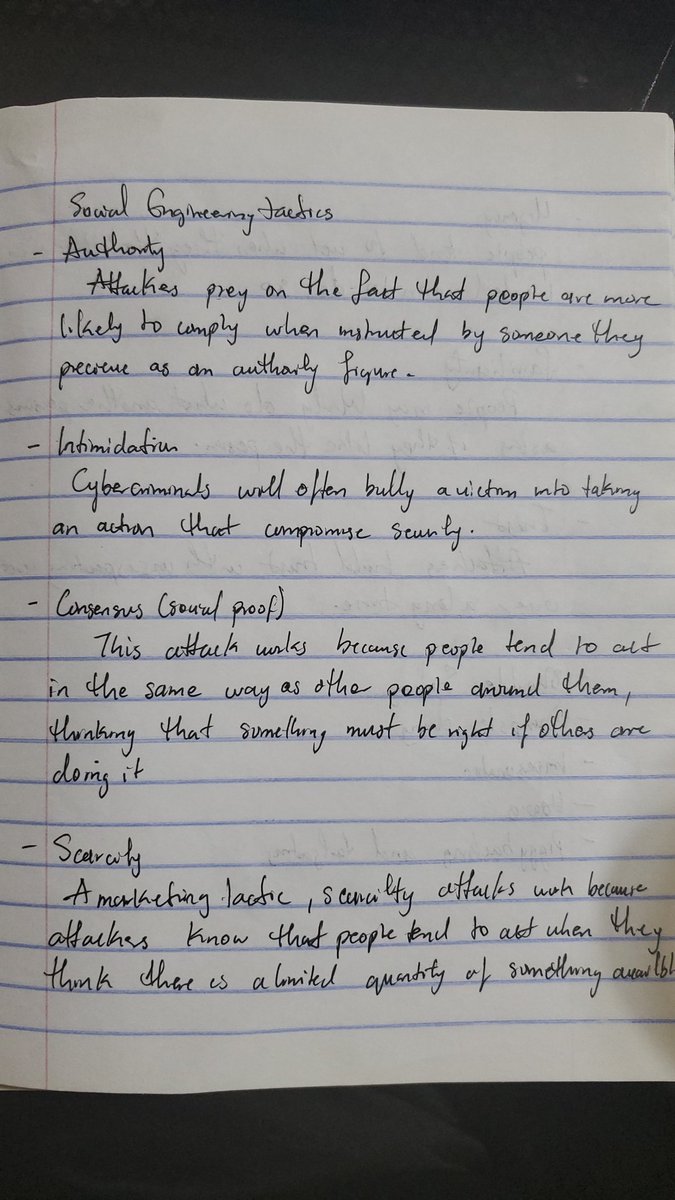 Social Engineering tactics
- Authority
Attackes prey on the fact that people are more
likely to comply when instructed by someone they
precieve as an authority figure.
- Intimidation
Cybercriminals will often bully a victim into taking
an action that compromise security.
- Consensus (social proof)
This attack works because people tend to act
in the same way as othe people around them,
thinking that something must be right if others are
doing it
- Scarcity
A marketing tactic, scarcity attacks work because
attackers know that people tend to act when they
think there is a limited quantity of something availbl